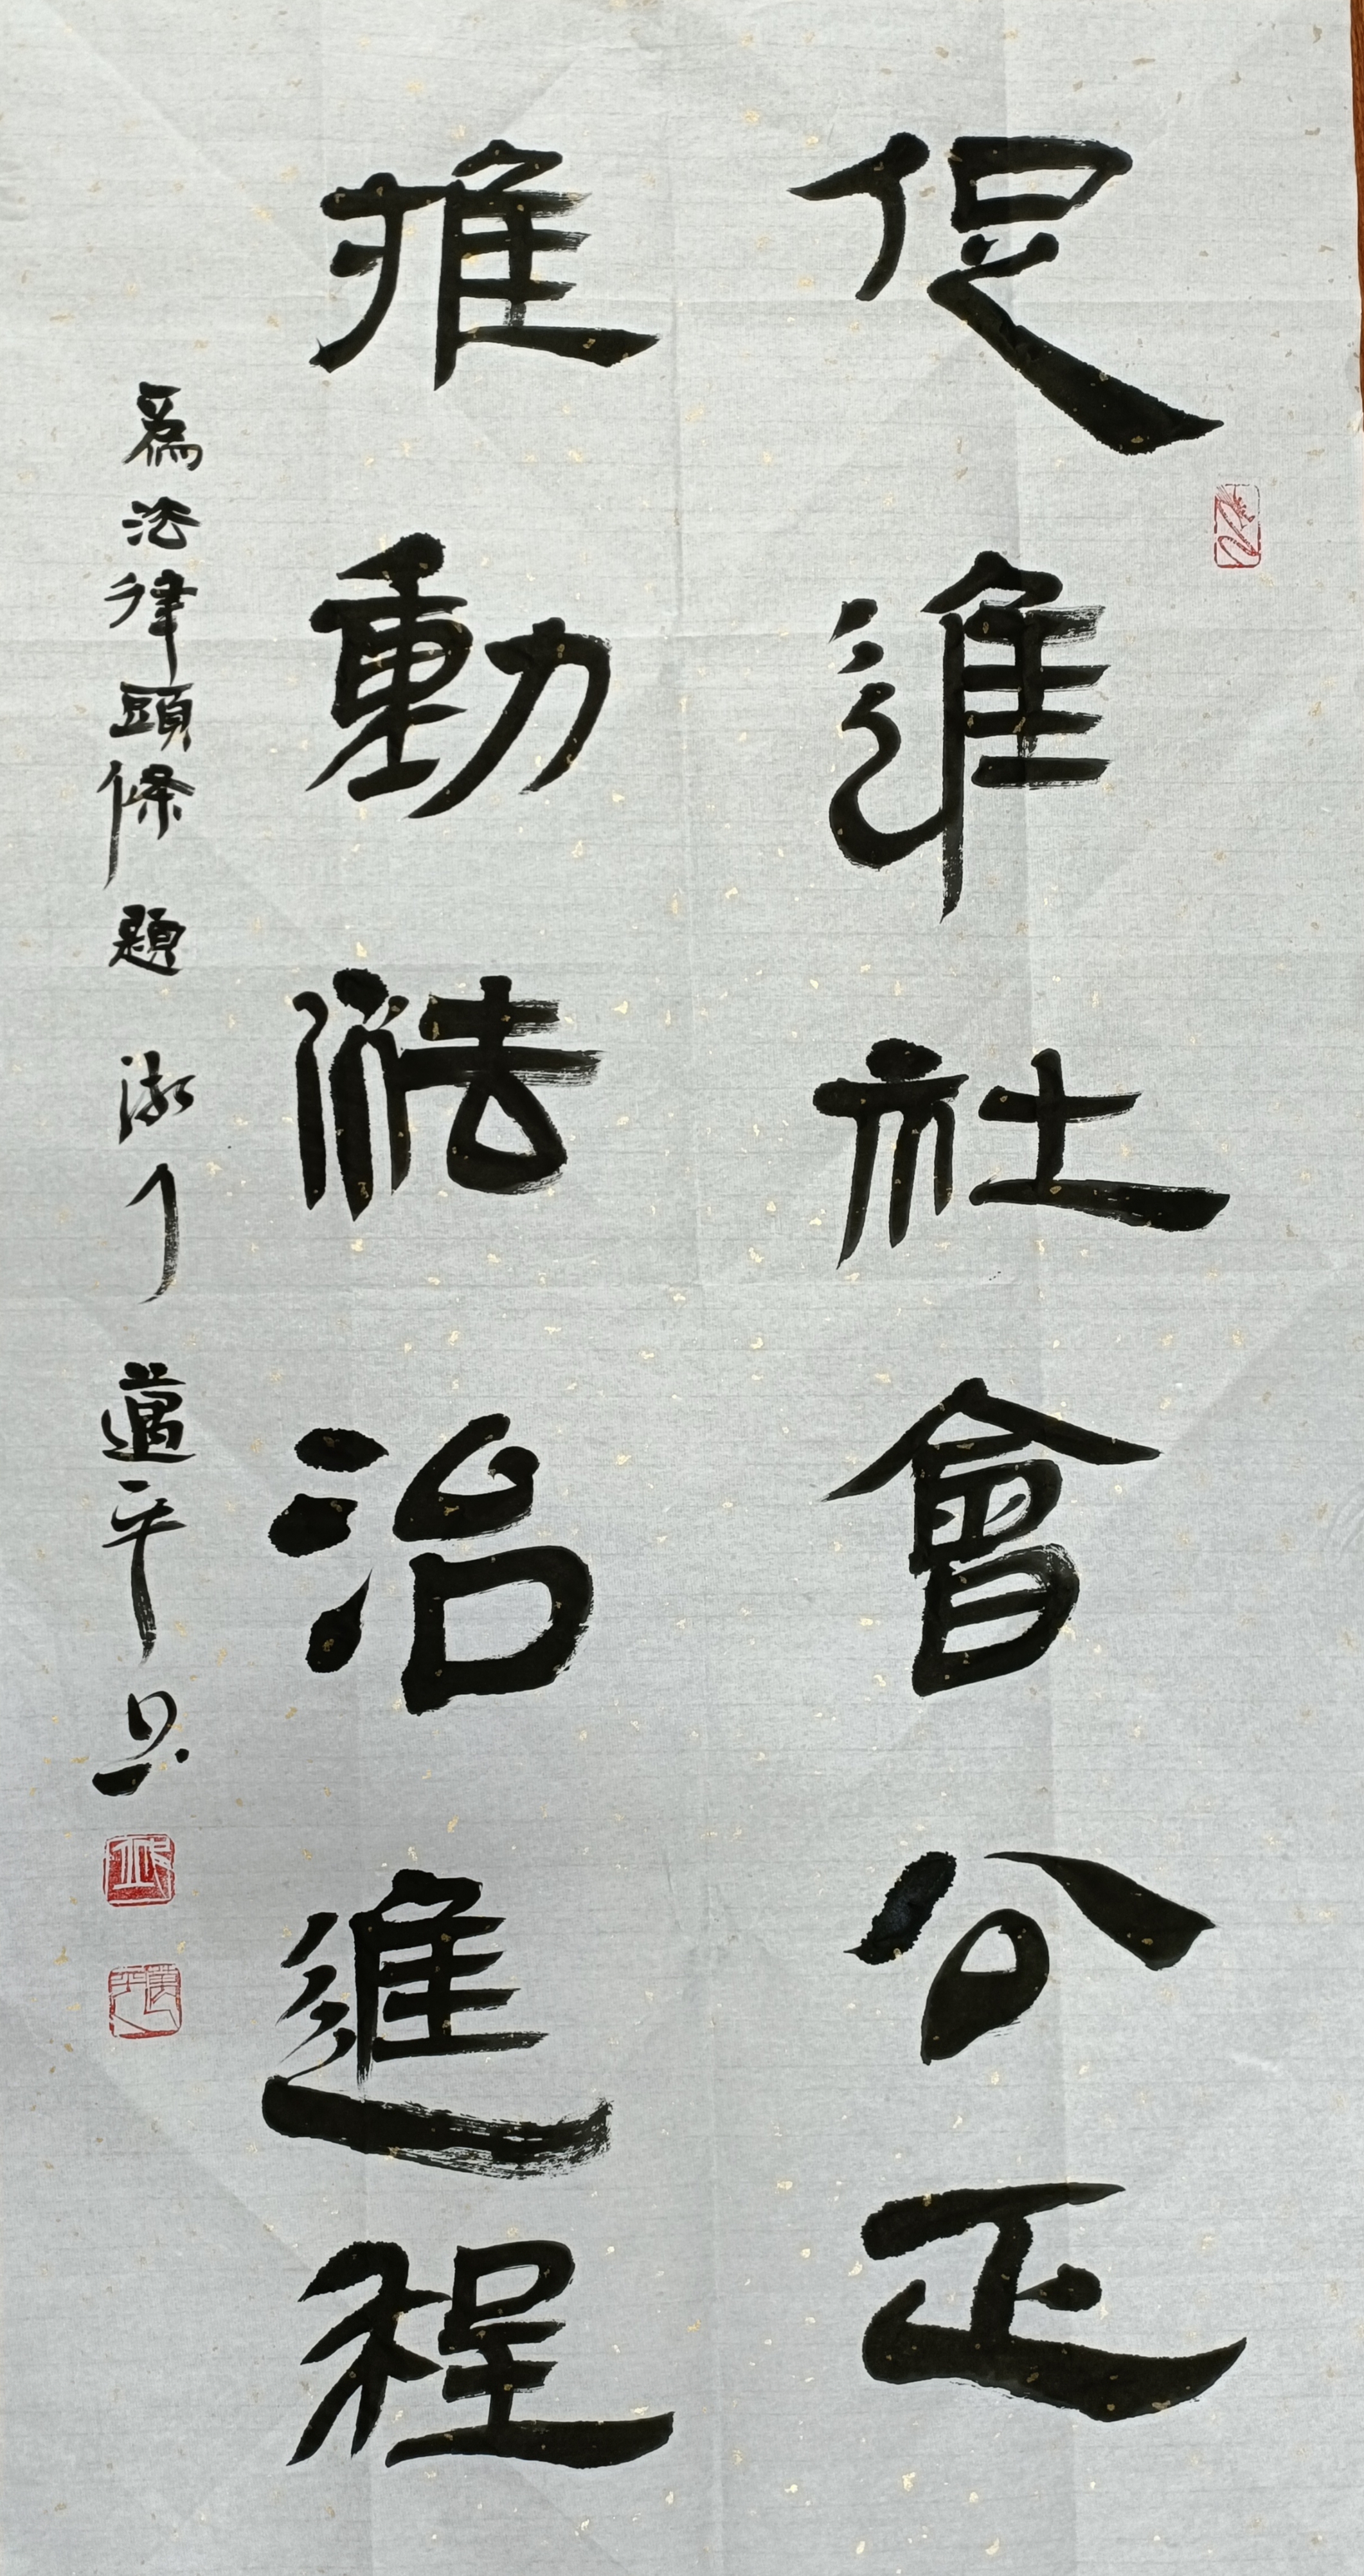 促進社會公正
推動法治進程
爲法律頭條題 邁平